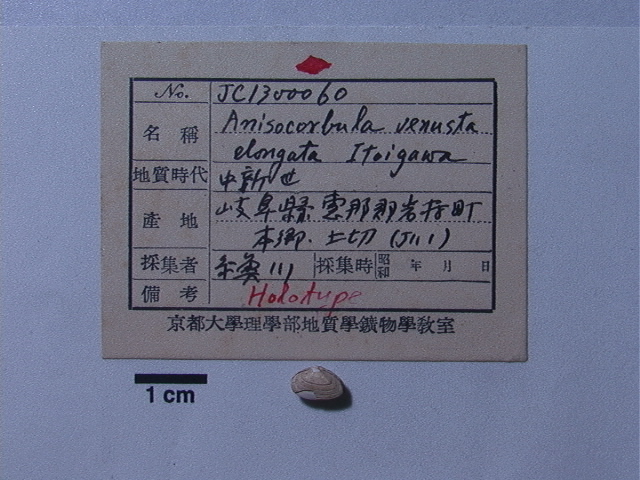 No. JC1300060
名稱 Anisocorbula venusta
elongata Itoigawa
地質時代 中新世
產地 岐阜縣 恵那郡岩村町
本郷.上切 (J111)
採集者 糸魚川 採集時 昭和 年 月 日
備考 Holotype
京都大學理學部地質學鑛物學教室
1 cm